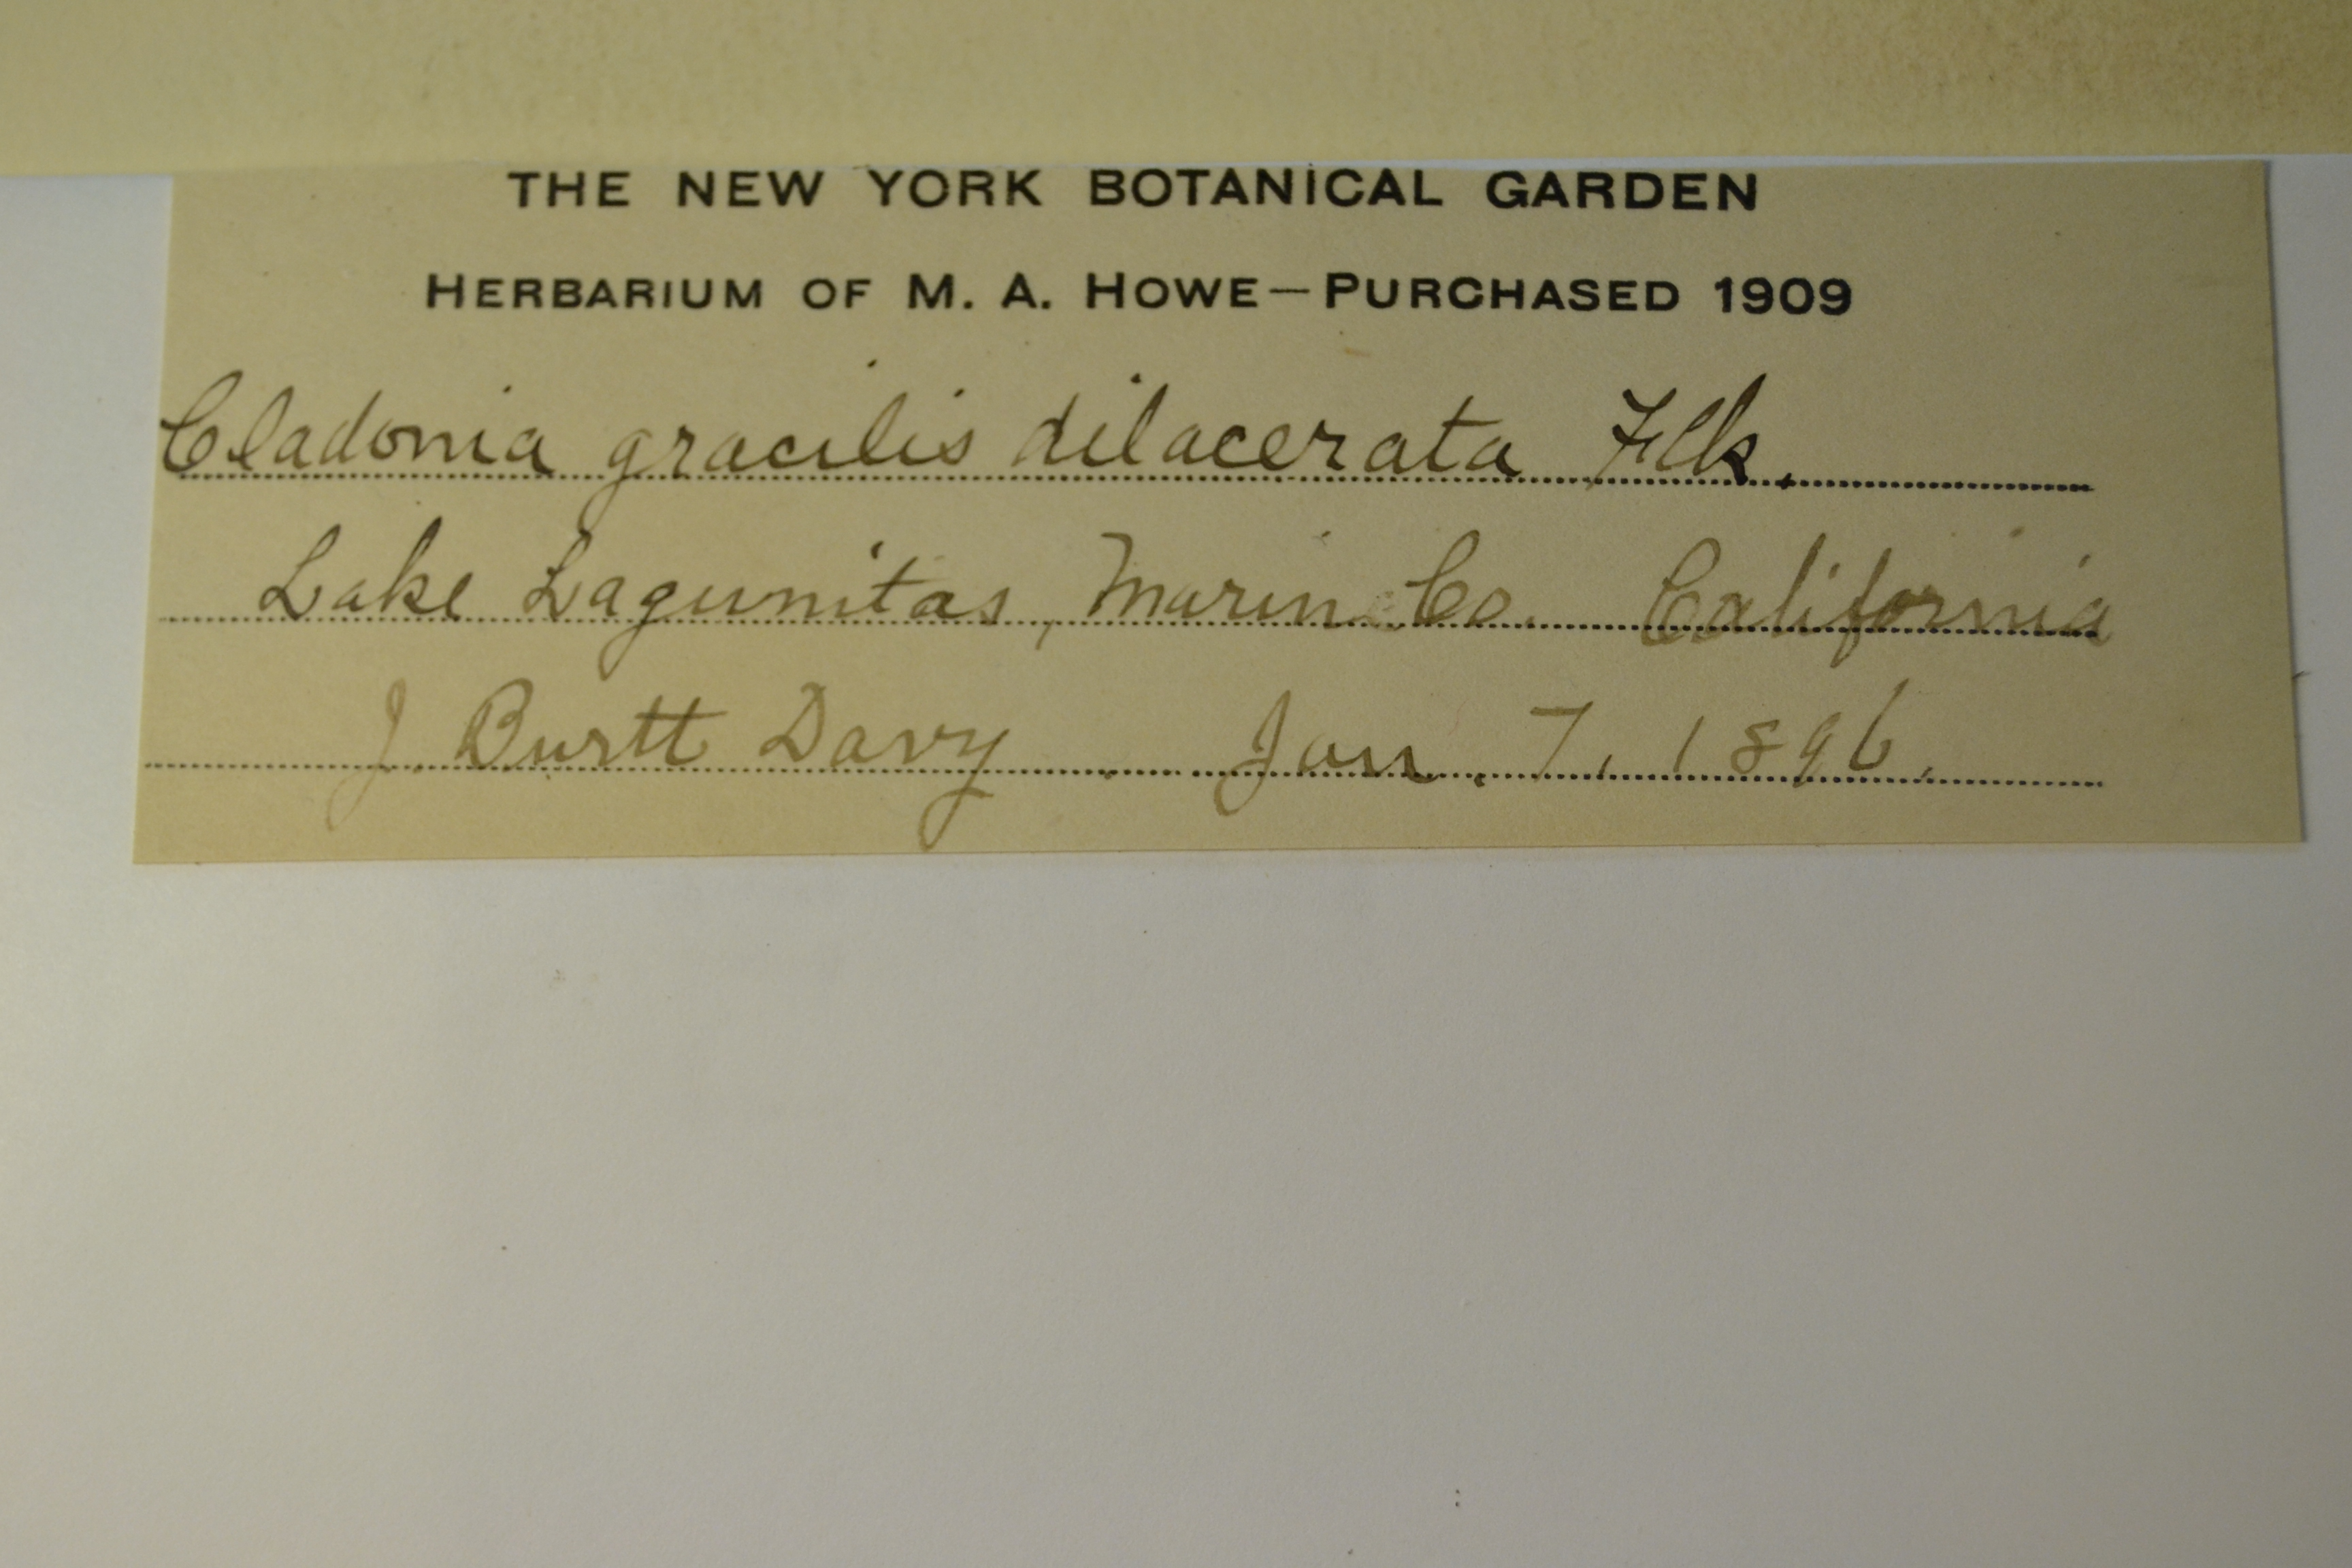 THE NEW YORK BOTANICAL GARDEN
HERBARIUM OF M. A. HOWE—PURCHASED 1909
Cladonia gracilis dilacerata Flk.
Lake Lagunitas, Marin Co. California
J. Burtt Davy Jan. 7, 1896.